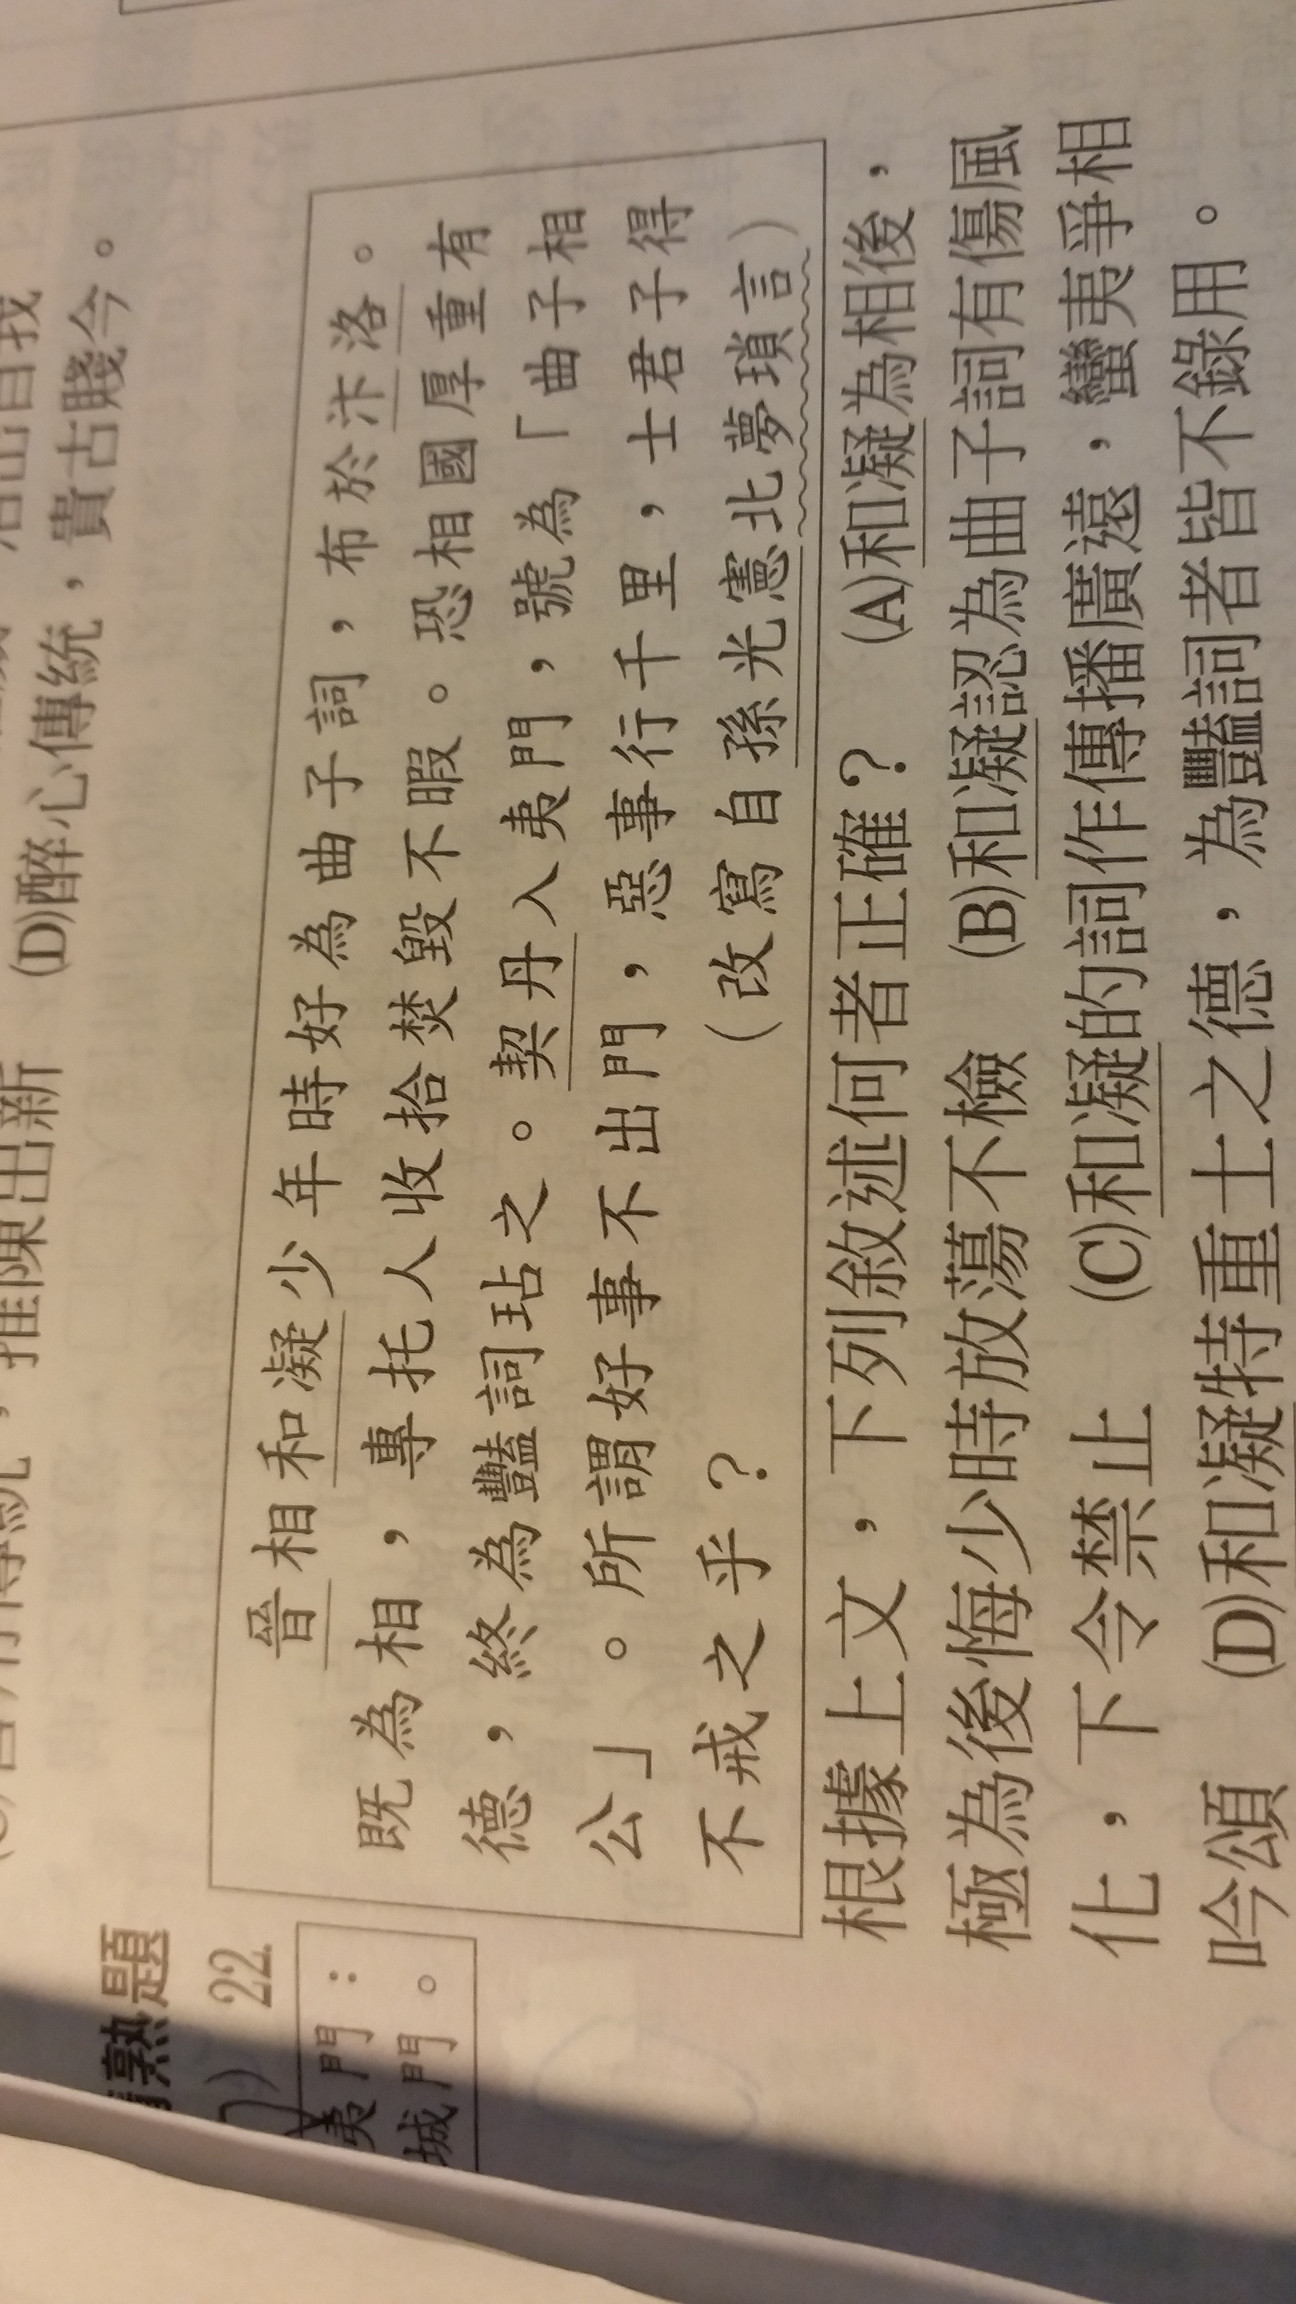 推陳出新　(D)醉心傳統，貴古賤今。
熟題
22
夷門：
城門。
晉相和凝少年時好為曲子詞，布於汴洛。
既為相，專托人收拾焚毀不暇。恐相國厚重有
德，終為豔詞玷之。契丹入夷門，號為「曲子相
公」。所謂好事不出門，惡事行千里，士君子得
不戒之乎？
（改寫自孫光憲北夢瑣言）
根據上文，下列敘述何者正確？　(A)和凝為相後，
極為後悔少時放蕩不檢　(B)和凝認為曲子詞有傷風
化，下令禁止　(C)和凝的詞作傳播廣遠，蠻夷爭相
吟頌　(D)和凝特重士之德，為豔詞者皆不錄用。